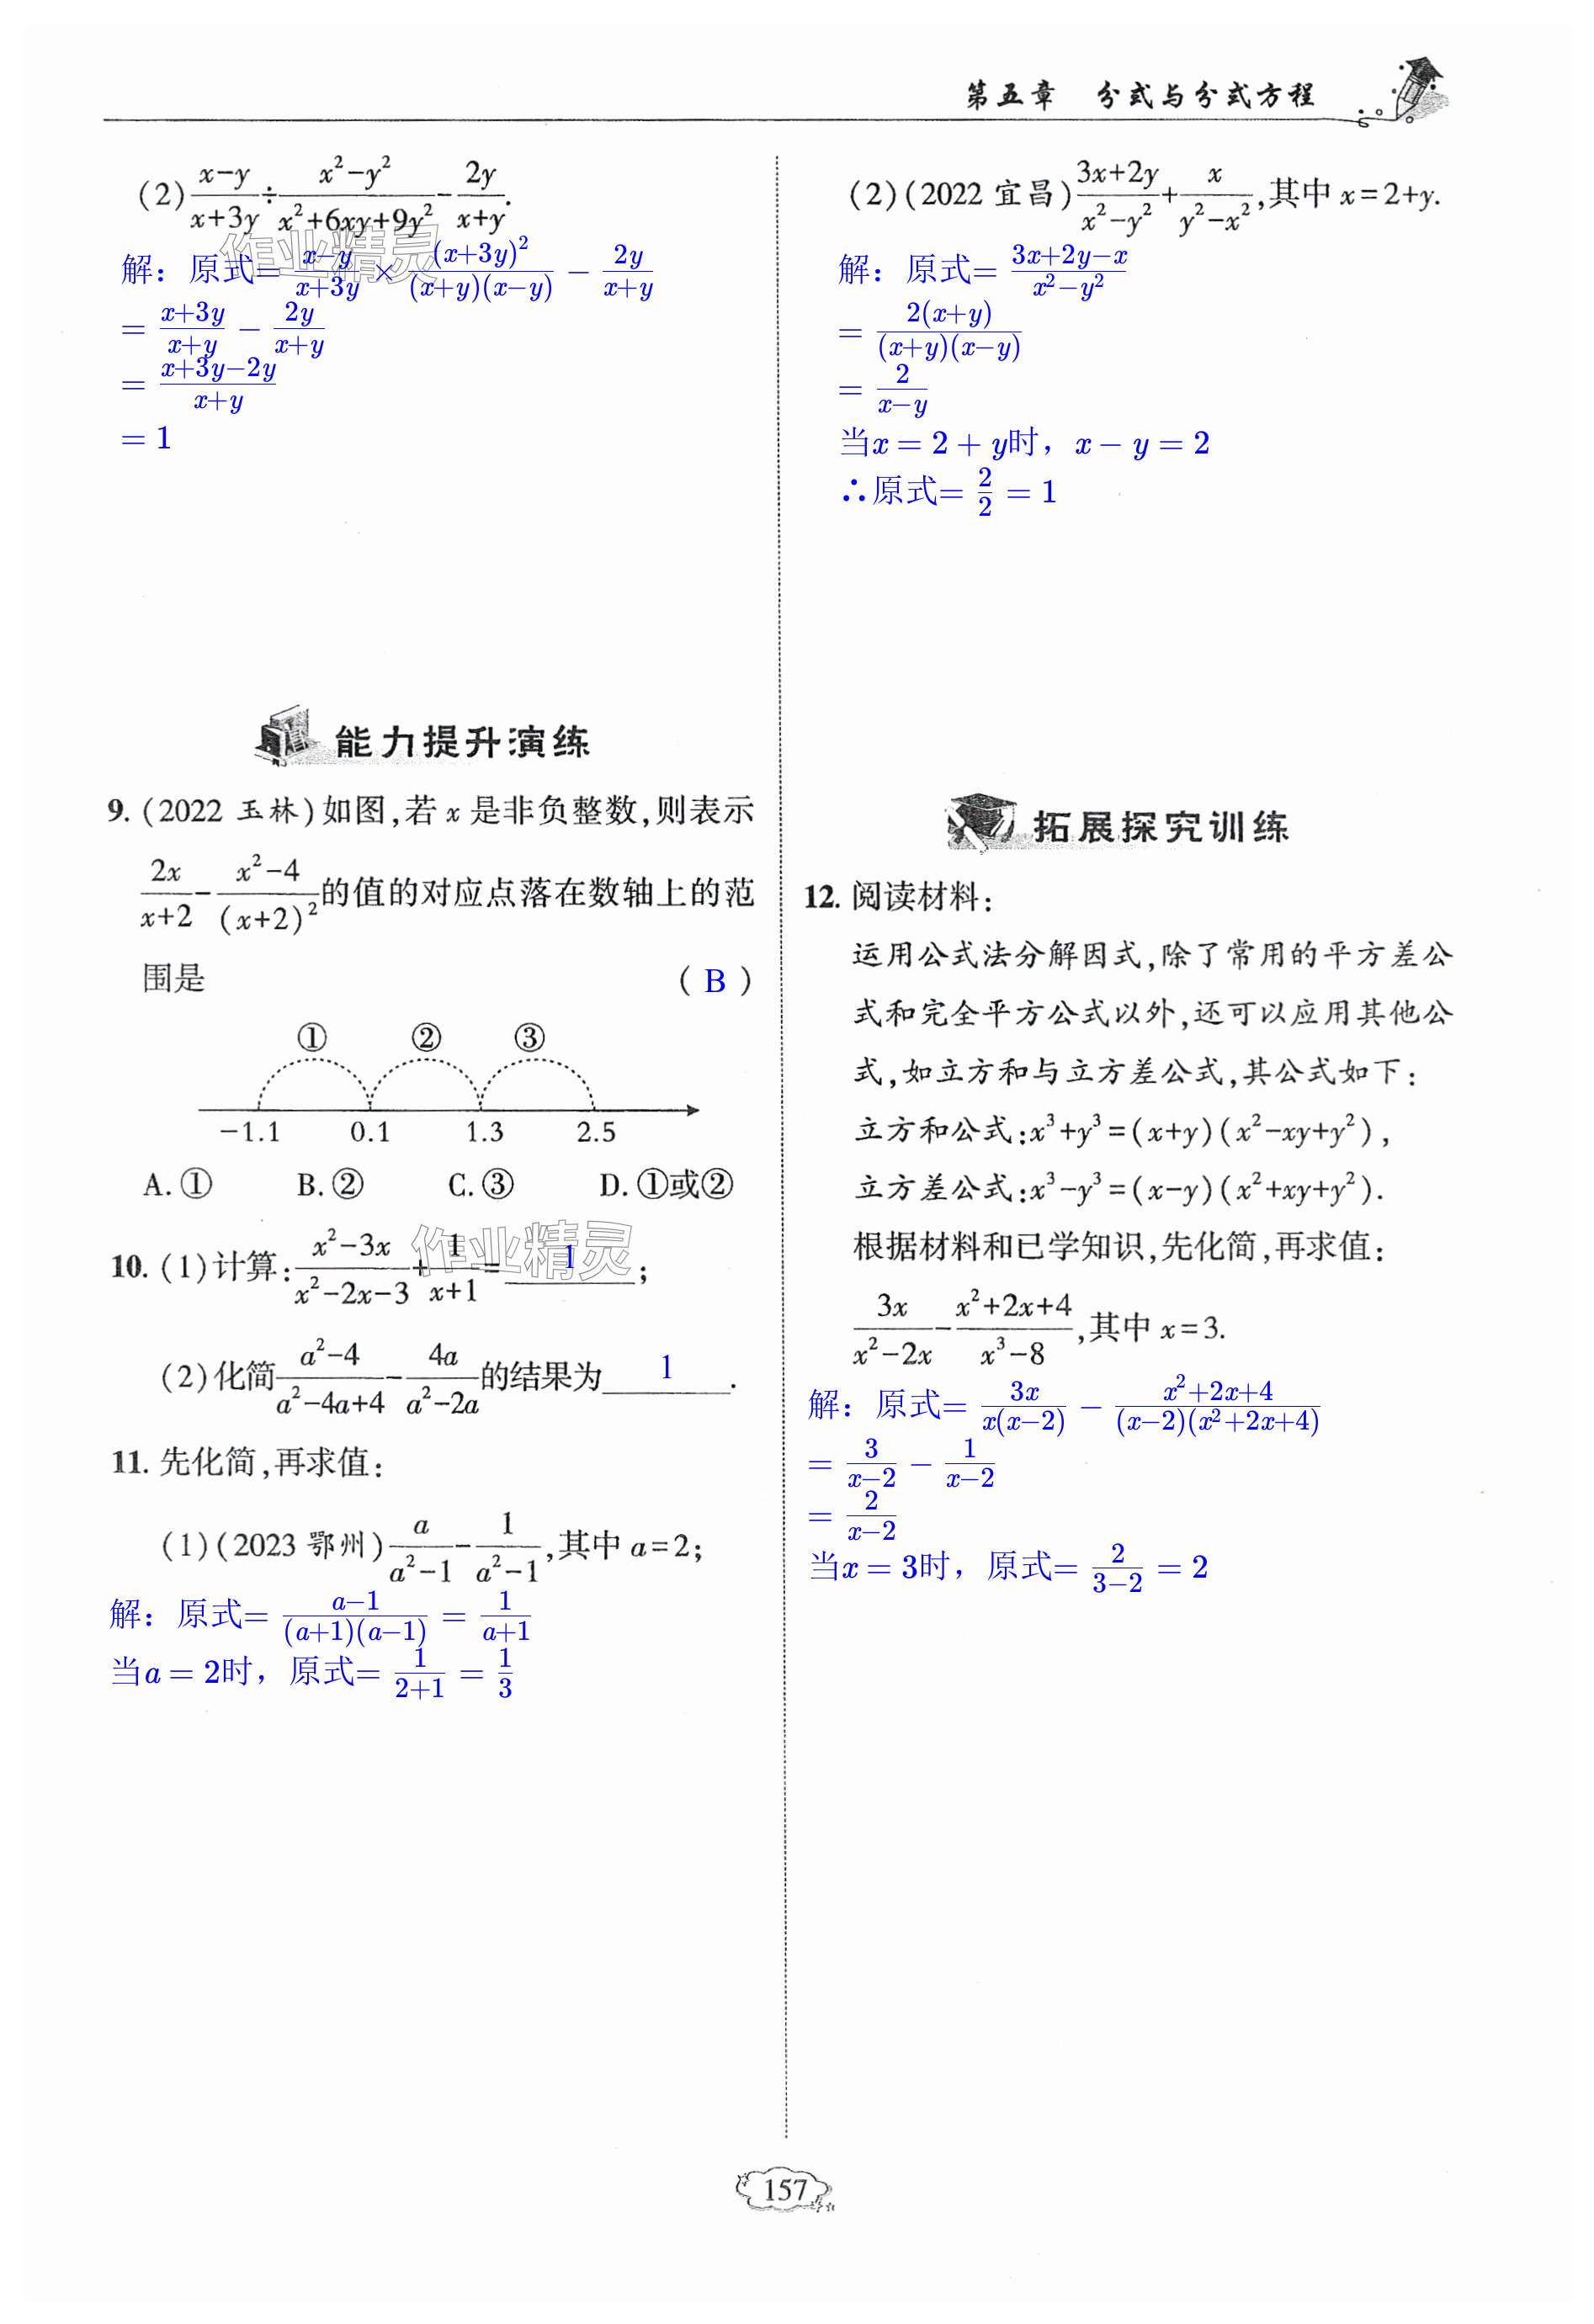 第五章　分式与分式方程
(2) \frac{x-y}{x+3y}÷\frac{x²-y²}{x²+6xy+9y²}-\frac{2y}{x+y}.
解：原式=\frac{x-y}{x+3y}×\frac{(x+3y)²}{(x+y)(x-y)}-\frac{2y}{x+y}
=\frac{x+3y}{x+y}-\frac{2y}{x+y}
=\frac{x+3y-2y}{x+y}
=1
作业精灵
能力提升演练
9. (2022 玉林)如图,若 x 是非负整数,则表示
\frac{2x}{x+2}-\frac{x²-4}{(x+2)²}的值的对应点落在数轴上的范
围是 ( B )
① ② ③
-1.1 0.1 1.3 2.5
A. ① B. ② C. ③ D. ①或②
10. (1)计算:\frac{x²-3x}{x²-2x-3}+\frac{1}{x+1}=1;
作业精灵
(2)化简\frac{a²-4}{a²-4a+4}-\frac{4a}{a²-2a}的结果为1.
11. 先化简,再求值:
(1)(2023 鄂州)\frac{a}{a²-1}-\frac{1}{a²-1},其中 a=2;
解：原式=\frac{a-1}{(a+1)(a-1)}=\frac{1}{a+1}
当a=2时，原式=\frac{1}{2+1}=\frac{1}{3}
(2)(2022 宜昌)\frac{3x+2y}{x²-y²}+\frac{x}{y²-x²},其中 x=2+y.
解：原式=\frac{3x+2y-x}{x²-y²}
=\frac{2(x+y)}{(x+y)(x-y)}
=\frac{2}{x-y}
当x=2+y时，x-y=2
∴原式=\frac{2}{2}=1
拓展探究训练
12. 阅读材料:
运用公式法分解因式,除了常用的平方差公
式和完全平方公式以外,还可以应用其他公
式,如立方和与立方差公式,其公式如下:
立方和公式:x³+y³=(x+y)(x²-xy+y²),
立方差公式:x³-y³=(x-y)(x²+xy+y²).
根据材料和已学知识,先化简,再求值:
\frac{3x}{x²-2x}-\frac{x²+2x+4}{x³-8},其中 x=3.
解：原式=\frac{3x}{x(x-2)}-\frac{x²+2x+4}{(x-2)(x²+2x+4)}
=\frac{3}{x-2}-\frac{1}{x-2}
=\frac{2}{x-2}
当x=3时，原式=\frac{2}{3-2}=2
157